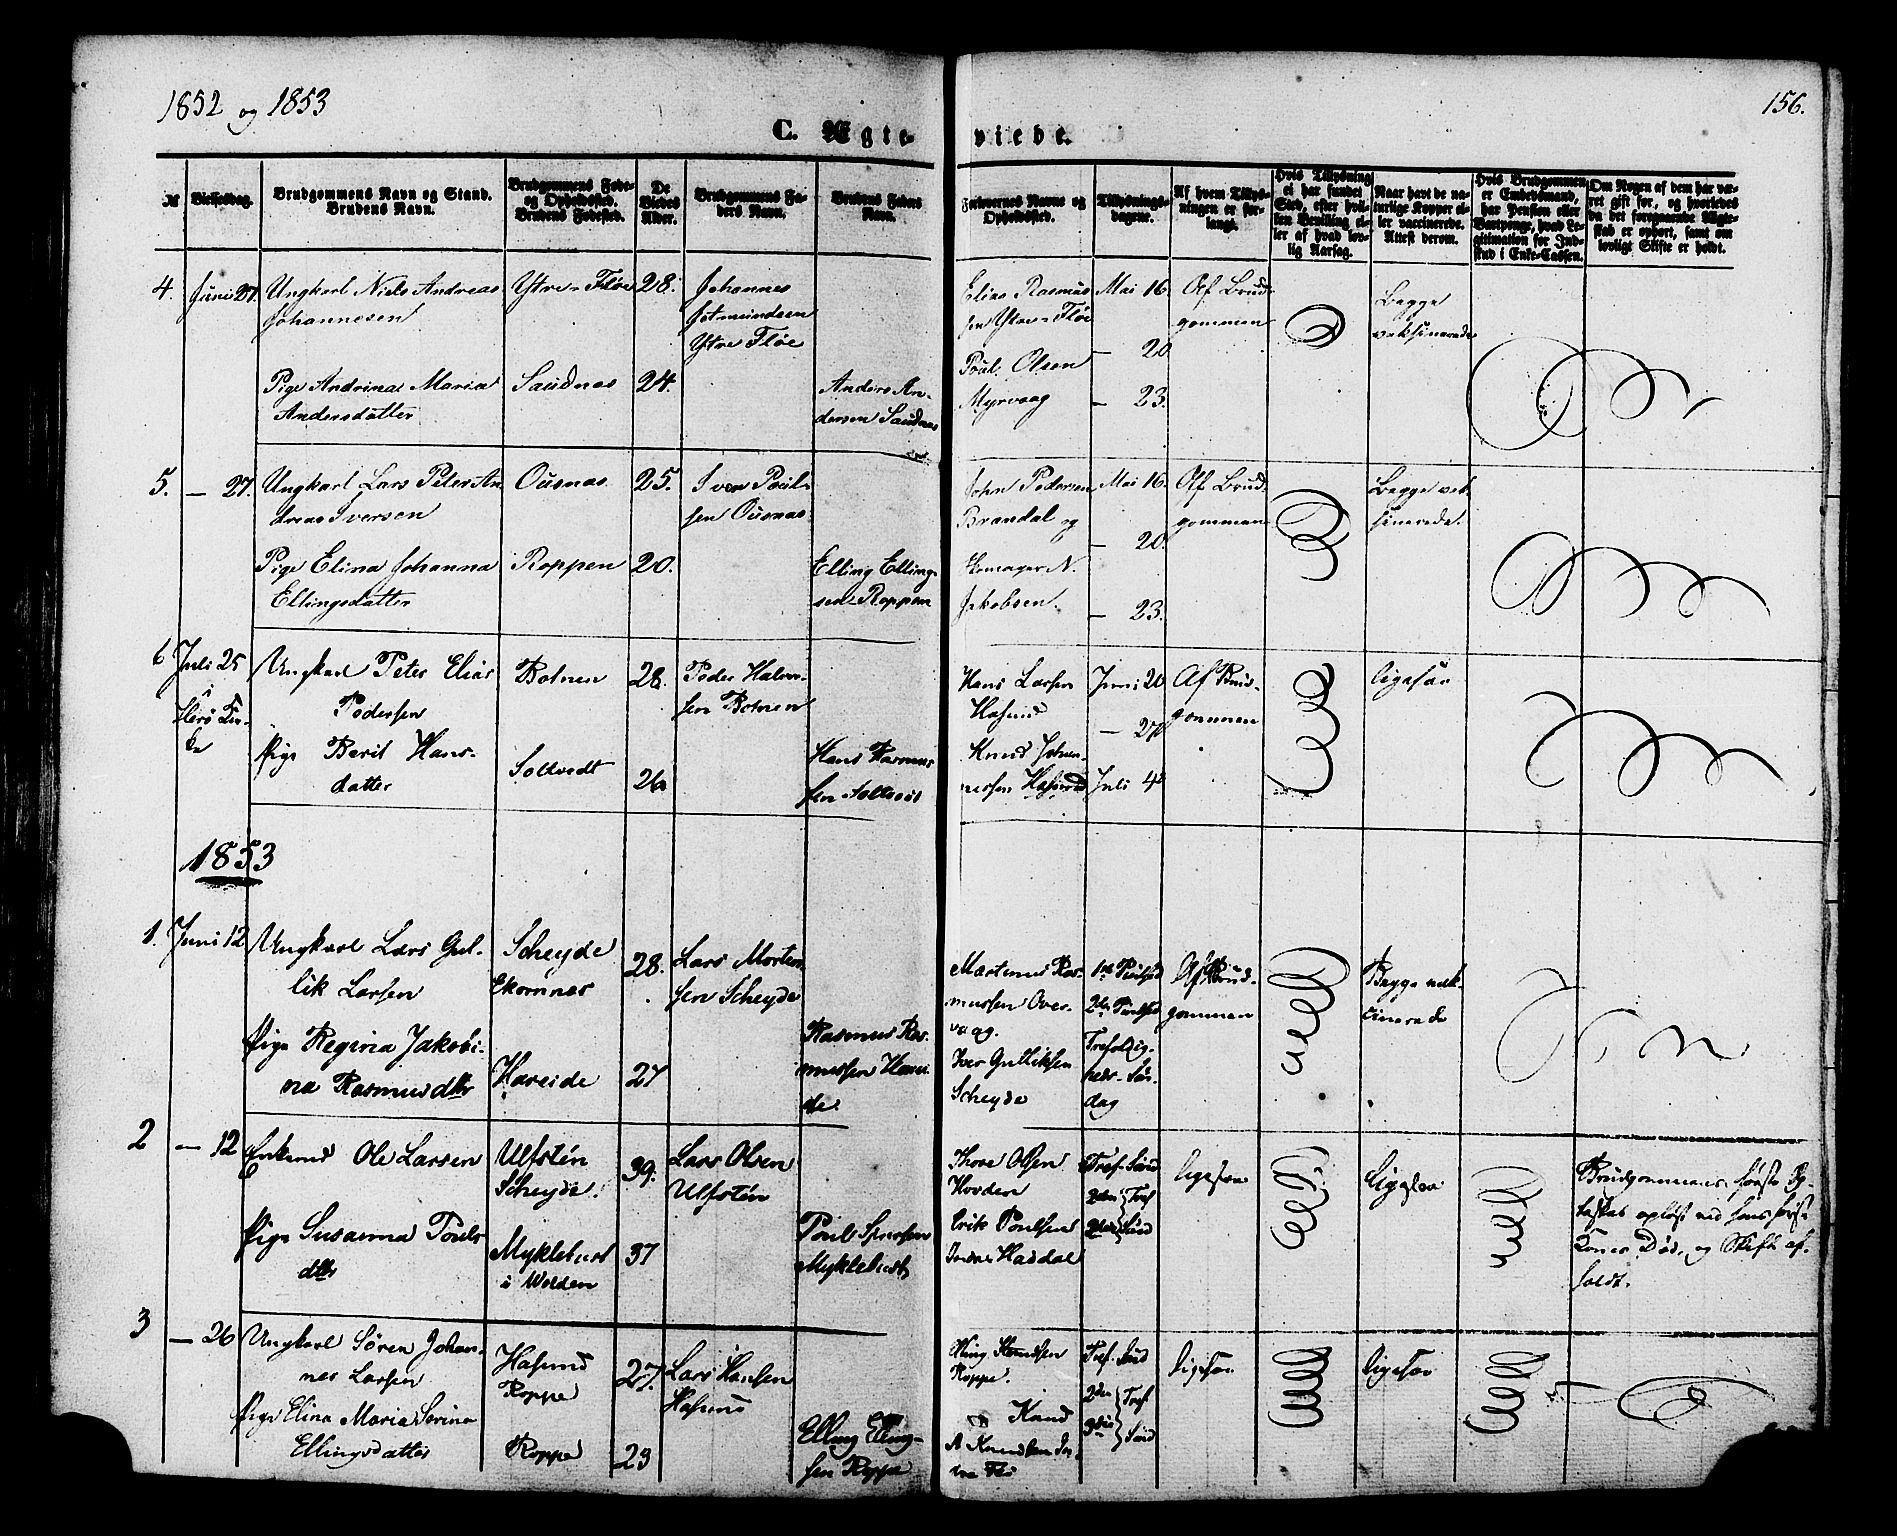 1852 og 1853
156.
C. Ægteviede.
№
Vielsesdag.
Brudgommens Navn og Stand.
Brudens Navn.
Brudgommens Føde-
og Opholdssted.
Brudens Fødested.
De
Viedes
Alder.
Brudgommens Fa-
ders Navn.
Brudens Faders
Navn.
Forlovernes Navne og
Opholdssted.
Tillysnings-
dagene.
Af hvem Tillys-
ningen er for-
langt.
Hvis Tillysning
ei har fundet
Sted, efter hvil-
ken Bevilling el-
ler af hvad lov-
lig Aarsag.
Naar havt de na-
turlige Kopper el-
ler vaccinerede.
Attest derom.
Hvis Brudgommen
er Embedsmand,
har Pension eller
Vartpenge, hvad Le-
gitimation for Ind-
skud i Enke-Cassen.
Om Nogen af dem har væ-
ret gift før, og hvorledes
da det foregaaende Ægte-
skab er ophørt, samt om
lovligt Skifte er holdt.
4.
Juni 27.
Ungkarl Niels Andreas
Johannesen
Pige Andrina Maria
Andersdatter
Ytre-Fløe
Saudnas
28.
24.
Johannes
Ytre Fløe
Anders An-
dersen Saudnas
Elias Rasmus-
sen Ytre-Fløe
Poul Olsen
Myrvaag
Mai 16.
— 20
— 23.
Af Brud-
gommen
Begge
vaksinerede
5.
— 27.
Ungkarl Lars Peter An-
dreas Iversen
Pige Elina Johanna
Ellingsdatter
Ousnas
Roppen
25.
20.
Iver Poul-
sen Ousnas
Elling Elling-
sen Roppen
John Pedersen
Brandal og
N.
Jakobsen.
Mai 16.
— 20.
— 23.
Af Brud-
gommen
Begge vak-
sinerede.
6
Juli 25
i
Herø Kir-
ke
Ungkarl Peter Elias
Pedersen
Pige Berit Hans-
datter
Botnen
Soltvedt
28.
26
Peder Halvor-
sen Botnen
Hans Rasmus-
sen Soltvedt
Hans Larsen
Hasund
Knud Johan-
nessen Hasund
Juni 20
— 27
Juli 4
Af Brud-
gommen
ligesaa
1853
1.
Juni 12
Ungkarl Lars Gul-
lik Larsen
Pige Regina Jakobi-
na Rasmusdtr
Scheyde
Ekornnes
Hareide
28.
27
Lars Morten-
sen Scheyde
Rasmus Ras-
mussen Harei-
de.
Martinus Ras-
mussen Over-
vaag.
Iver Gulliksen
Scheyde
1ste Pintsed
2den Pintsed
Trefoldig-
heds-Søn-
dag
Af Brud-
gommen
Begge vak-
cinerede
2
— 12
Enkemd Ole Larsen
Pige Susanna Pouls-
dtr
Ulfstén
Scheyde.
Myklebust
i Volden
39.
37
Lars Olsen
Ulfstén
Poul
Myklebust
Thore Olsen
Hovden
Erik Poulsen
Indre Haddal
Tref. Sønd
2den } Tref
3die } Sønd
ligesaa
ligesaa
Brudgommens første Eg-
teskab opløst ved hans første
Kones Død, og Skifte af-
holdt.
3
— 26
Ungkarl Søren Johan-
nes Larsen
Pige Elina Maria Serina
Ellingsdatter
Hasund
Roppe
Roppe
27.
23
Lars Hansen
Hasund
Elling Elling-
sen Roppe
Roppe.
Knud
A Knudsen In-
dre Flø
Tref. Sønd
2den } Tref
3die } Sønd
ligesaa
ligesaa